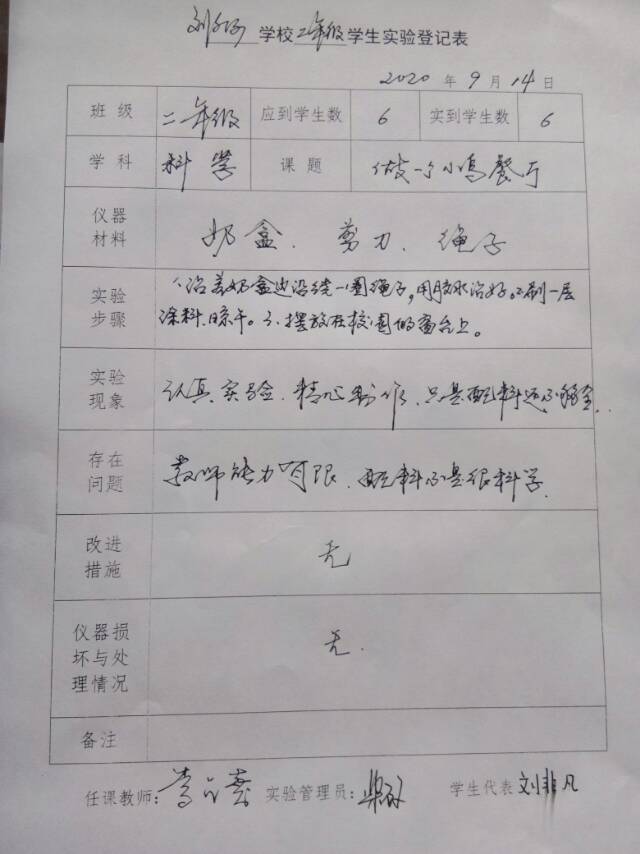 学校二年级学生实验登记表
2020 年 9 月 14 日
班 级 二年级 应到学生数 6 实到学生数 6
学 科 科学 课 题 做一个小鸟餐厅
仪器材料 奶盒、剪刀、绳子
实验步骤 1、沿着奶盒边沿绕一圈绳子,用胶水沾好。2、刷一层
涂料、晾干。3、摆放在校园的窗台上。
实验现象 认真实验、精心制作、只是配料还不够全.
存在问题 教师能力有限、配料不是很科学.
改进措施 无
仪器损坏与处理情况 无.
备注
任课教师: 实验管理员: 学生代表 刘非凡